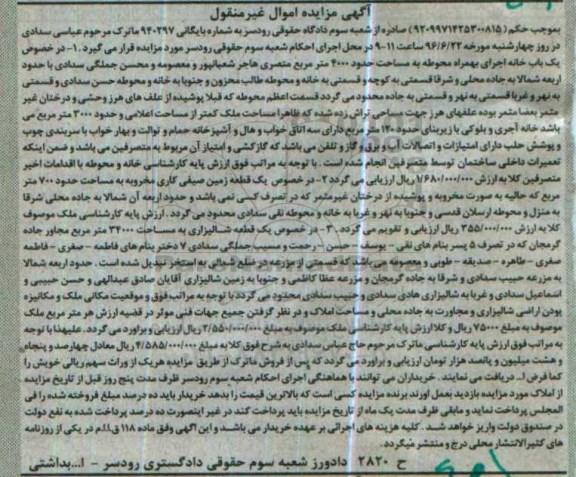 آگهی مزایده اموال غیرمنقول
بموجب حکم (۹۲۰۹۹۷۱۴۲۵۳۰۰۸۱۵) صادره از شعبه سوم دادگاه حقوقی رودسر به شماره بایگانی ۹۴۰۲۹۷ ماترک مرحوم عباسی سدادی
در روز چهارشنبه مورخه ۹۶/۶/۲۲ ساعت ۱۱-۹ در محل اجرای احکام شعبه سوم حقوقی رودسر مورد مزایده قرار می گیرد .۱- در خصوص
یک باب خانه اجرای بهمراه محوطه به مساحت حدود ۴۰۰۰ متر مربع متصری هاجر شعبانپور و معصومه و محسن جملگی سدادی با حدود
اربعه شمالا به جاده محلی و شرقا قسمتی به کوچه و قسمتی به خانه و محوطه طالب محزون و جنوبا به خانه و محوطه حسن سدادی و قسمتی
به نهر و غربا قسمتی به نهر و قسمتی به جاده محدود می گردد قسمت اعظم محوطه که قبلا پوشیده از علف های هرز وحشی و درختان غیر
مثمر بعضا مثمر بوده علفهای هرز جهت مساحی تراش زده شده که ظاهرا مساحت ملک کمتر از مساحت اعلامی و حدود ۳۰۰۰ متر مربع می
باشد خانه آجری و بلوکی با زیربنای حدود ۱۲۰ متر مربع دارای سه اتاق خواب و هال و آشپزخانه حمام و توالت و بهار خواب با سربندی چوب
و پوشش حلب دارای امتیازات و اتصالات آب و برق و گاز و تلفن می باشد که گازکشی و امتیاز آن مربوط به متصرفین می باشد و ضمن اینکه
تعمیرات داخلی ساختمان توسط متصرفین انجام شده است . با توجه به مراتب فوق ارزش پایه کارشناسی خانه و محوطه با اقدامات اخیر
متصرفین کلا به ارزش ۱/۶۸۰/۰۰۰/۰۰۰ ریال ارزیابی می گردد ۲- در خصوص یک قطعه زمین صیفی کاری مخروبه به مساحت حدود ۷۰۰ متر
مربع که حالیه به صورت مخروبه و پوشیده از درختان غیرمثمر که در تصرف کسی نمی باشد و حدود اربعه آن شمالا به جاده محلی شرقا
به منزل و محوطه ارسلان قدسی و جنوبا به نهر و غربا به خانه و محوطه تقی سدادی محدود می گردد . ارزش پایه کارشناسی ملک موصوف
کلا به ارزش ۳۵۵/۰۰۰/۰۰۰ ریال ارزیابی و تقویم می گردد . ۳- در خصوص یک قطعه شالیزاری به مساحت ۳۴۰۰۰ متر مربع مجاور جاده
گرمجان که در تصرف ۵ پسر بنام های نقی - یوسف - حسن - رحمت و مسیب جملگی سدادی ۷ دختر بنام های فاطمه - صغری - فاطمه
صغری - طاهره - صدیقه - طوبی و معصومه می باشد که قسمتی از مزرعه در ضلع شمالی به استخر تبدیل شده است . حدود اربعه شمالا
به مزرعه حبیب سدادی و شرقا به جاده گرمجان و مزرعه عطا کاظمی و جنوبا به زمین شالیزاری آقایان صادق عبدالهی و حسن حبیبی و
اسماعیل سدادی و غربا به شالیزاری هادی سدادی و حبیب سدادی محدود می گردد با توجه به مراتب فوق و موقعیت مکانی ملک و مکانیزه
بودن اراضی شالیزاری و مجاورت به جاده محلی و مساحت املاک و در نظر گرفتن جمیع جهات فنی موثر در قضیه ارزش هر متر مربع ملک
موصوف به مبلغ ۷۵۰۰۰ ریال و کلا ارزش پایه کارشناسی ملک موصوف به مبلغ ۲/۵۵۰/۰۰۰/۰۰۰ ریال ارزیابی و براورد می گردد . علیهذا با توجه
به مراتب فوق ارزش پایه کارشناسی ماترک مرحوم حاج عباس سدادی به شرح فوق کلا به مبلغ ۴/۵۸۵/۰۰۰/۰۰۰ ریال معادل چهارصد و پنجاه
و هشت میلیون و پانصد هزار تومان ارزیابی و براورد می گردد که پس از فروش ماترک از طریق مزایده هریک از وراث سهم ریالی خویش را
کما فرض ا... دریافت می نمایند . خریداران می توانند با هماهنگی اجرای احکام شعبه سوم رودسر ظرف مدت پنج روز قبل از تاریخ مزایده
از املاک مورد مزایده بازدید بعمل آورند برنده مزایده کسی است که بالاترین قیمت را بدهد خریدار باید ده درصد مبلغ فروخته شده را فی
المجلس پرداخت نماید و مابقی ظرف مدت یک ماه از تاریخ مزایده باید پرداخت کند در غیر اینصورت ده درصد پرداخت شده به نفع دولت
در صندوق دولت واریز خواهد شد . کلیه هزینه های اجرائی بر عهده خریدار می باشد و این آگهی وفق ماده ۱۱۸ ق.ا.م در یکی از روزنامه
های کثیرالانتشار محلی درج و منتشر میگردد.
ح ۲۸۲۰ دادورز شعبه سوم حقوقی دادگستری رودسر - ا...بداشتی